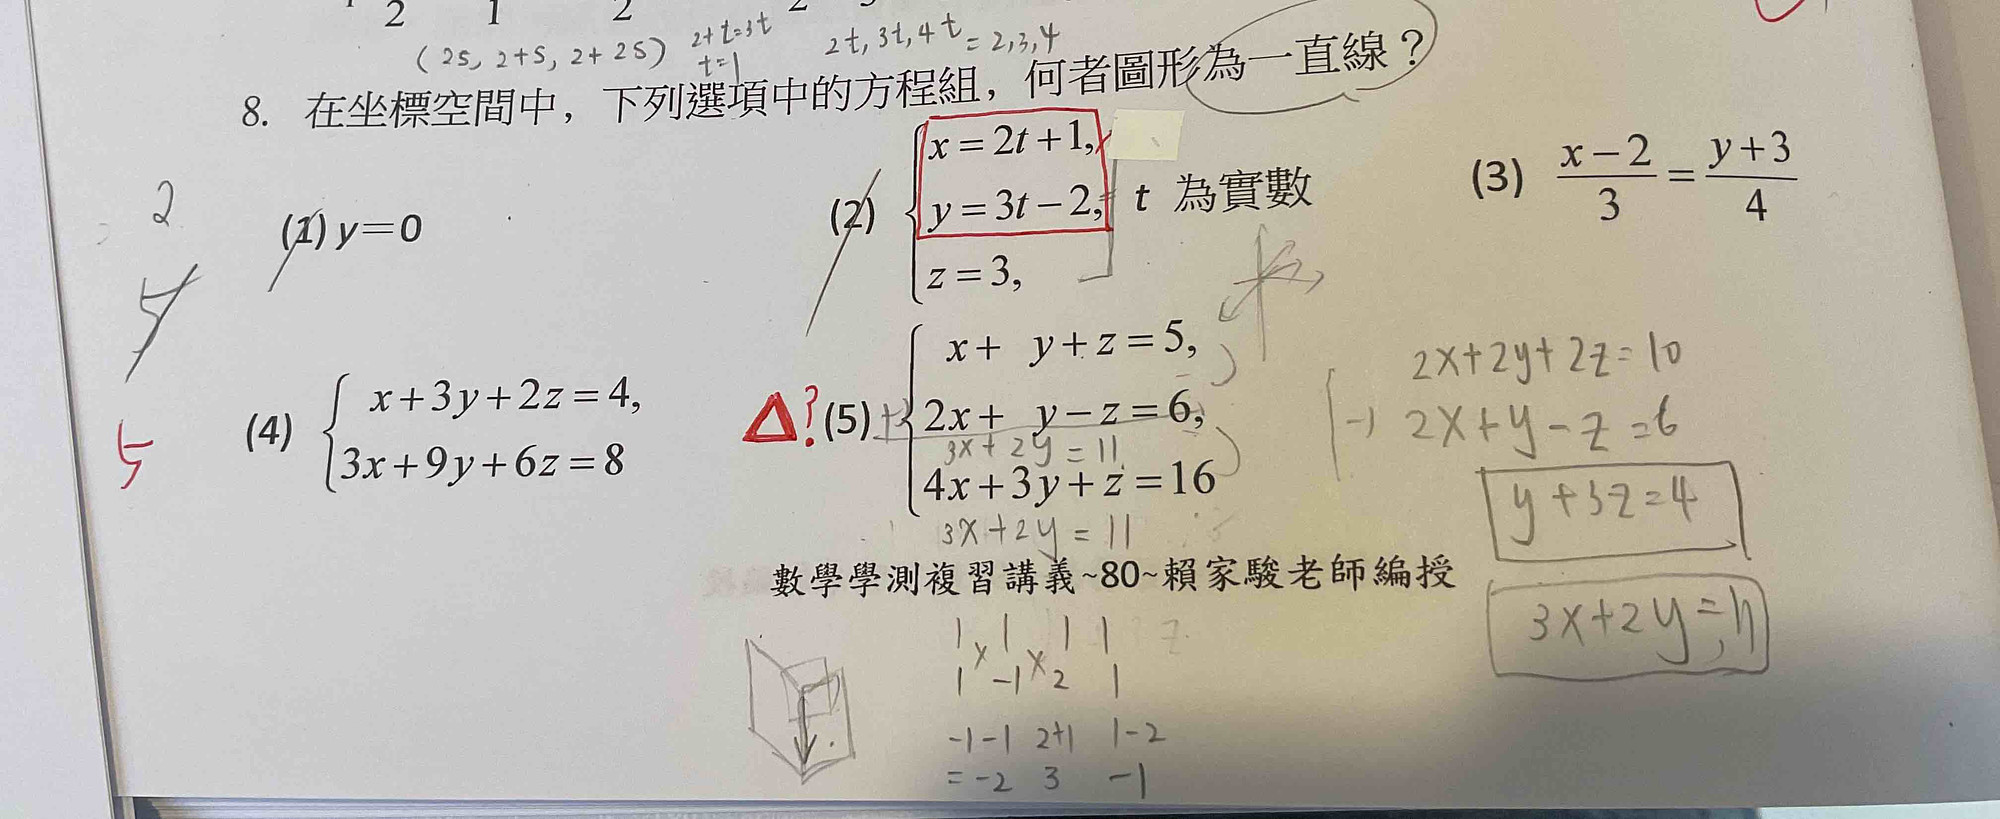 2 1 2
(2s, 2+s, 2+2s) 2+t=3t 2t, 3t, 4t = 2,3,4
t=1
8. 在坐標空間中，下列選項中的方程組，何者圖形為一直線？
(1) y=0
(2) x=2t+1,
y=3t−2, t 為實數
z=3,
(3) x−2/3 = y+3/4
(4) x+3y+2z=4,
3x+9y+6z=8
△?(5) x+ y+z=5,
2x+ y−z=6,
3x+2y=11
4x+3y+z=16
3x+2y=11
2
5
5
2x+2y+2z=10
-) 2x+y-z=6
y+3z=4
3x+2y=11
數學學測複習講義~80~賴家駿老師編授
1 1 1 1
1 -1 2 1
-1-1 2+1 1-2
=-2 3 -1